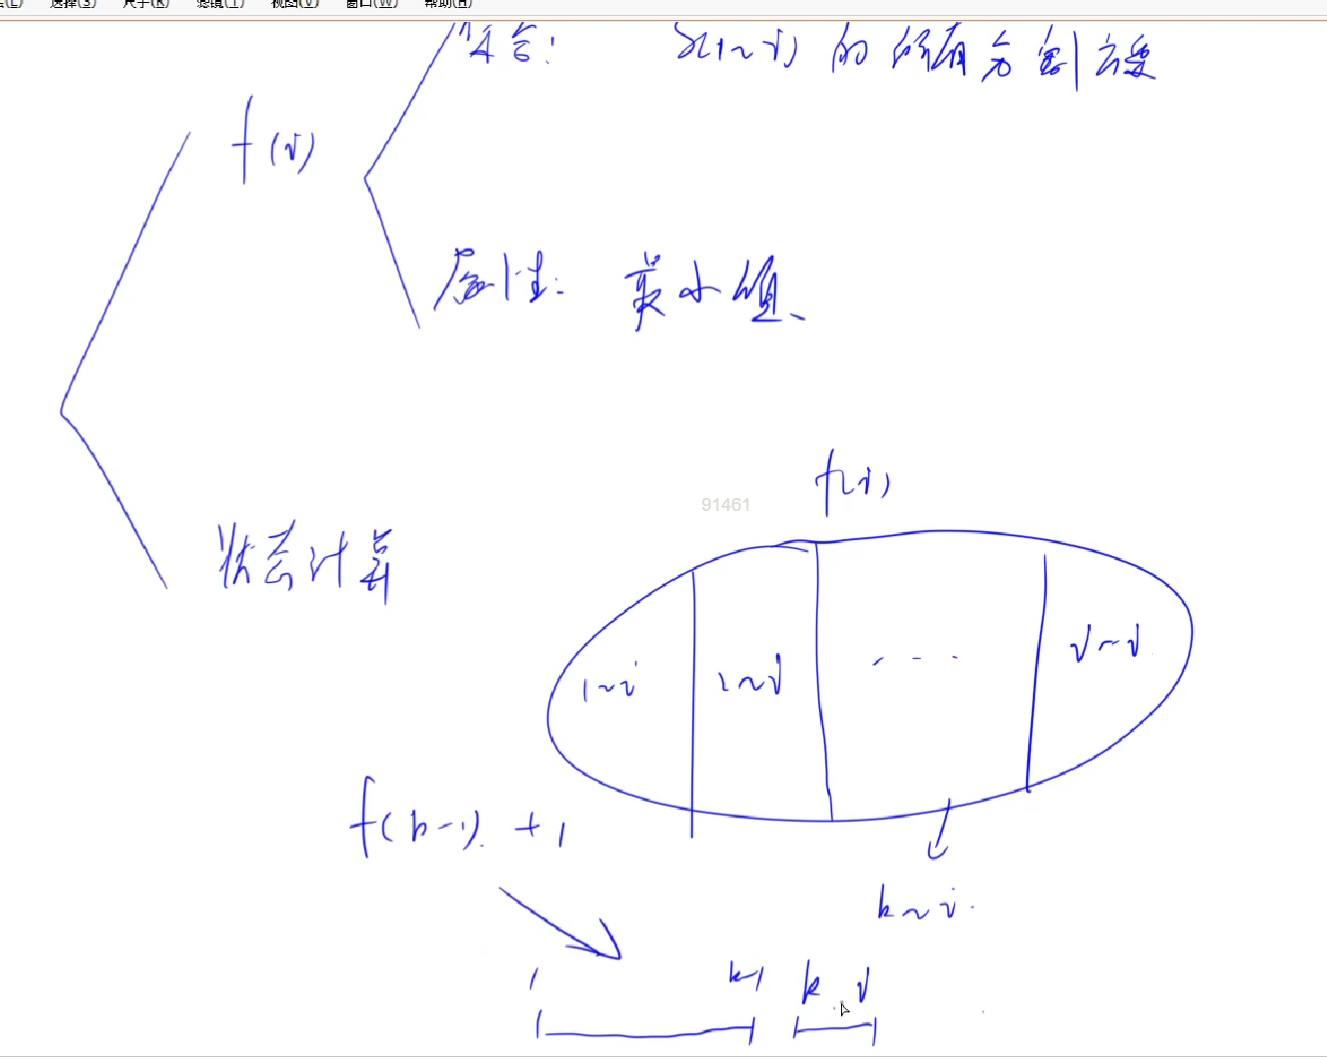 选择(S) 尺寸(R) 滤镜(T) 视图(V) 窗口(W) 帮助(H)
集合: S(1~i) 的所有分割方案
f(i)
属性: 最小值、
f(i)
91461
状态计算
1~i 2~i - - - i~i
f(k-1) + 1
k~i
1 k-1 k i